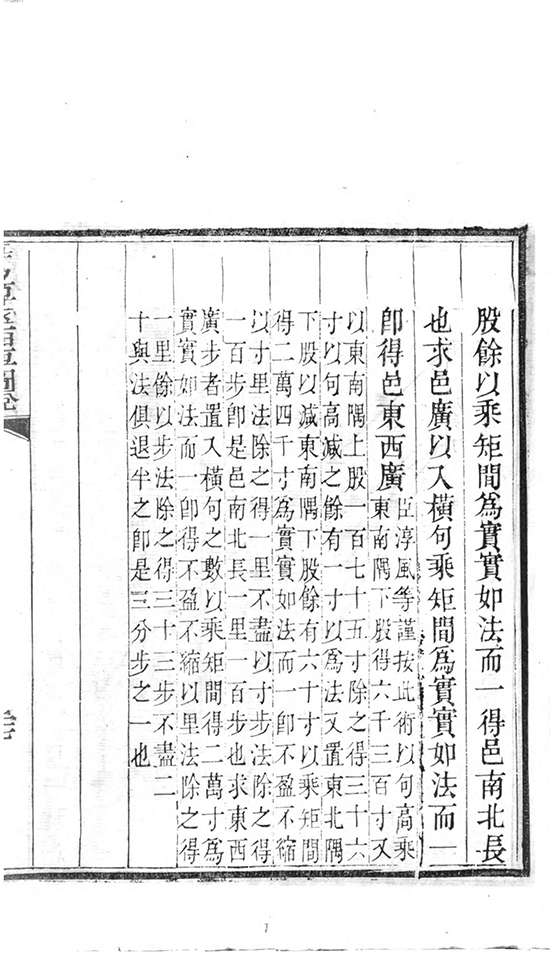 股餘以乘矩間爲實實如法而一得邑南北長
也求邑廣以入橫句乘矩間爲實實如法而一
卽得邑東西廣
臣淳風等謹按此術以句高乘
東南隅下股得六千三百寸又
以東南隅上股一百七十五寸除之得三十六
寸以句高減之餘有一寸以爲法又置東北隅
下股以減東南隅下股餘有六十寸以乘矩間
得二萬四千寸爲實實如法而一卽不盈不縮
以寸里法除之得一里不盡以寸步法除之得
一百步卽是邑南北長一里一百步也求東西
廣步者置入橫句之數以乘矩間得二萬寸爲
實實如法而一卽得不盈不縮以里法除之得
一里餘以步法除之得三十三步不盡二
十與法俱退半之卽是三分步之一也